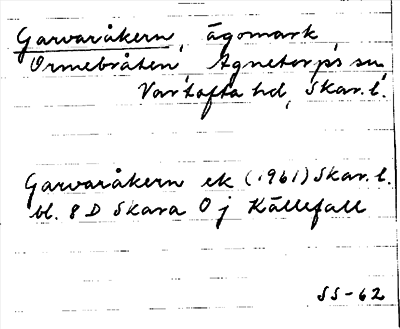 Garvaråkern, ägomark,
Ormebråten, Agnetorps sn,
Vartofta hd, Skar. l.
Garvaråkern ek (1961) Skar. l.
bl. 8 D Skara 0 j Källefall
SS-62